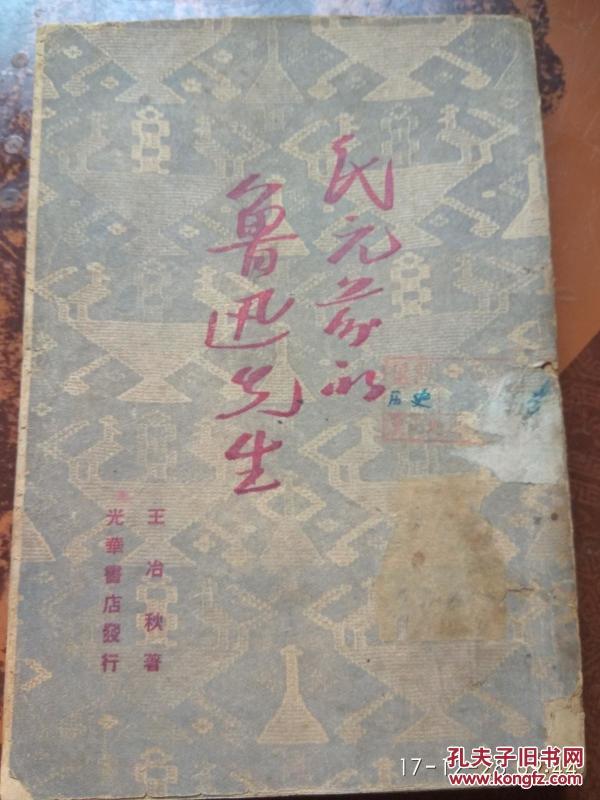 民元前的
鲁迅先生
王冶秋著
光華書店發行
历史
17-1
孔夫子旧书网
www.kongfz.com